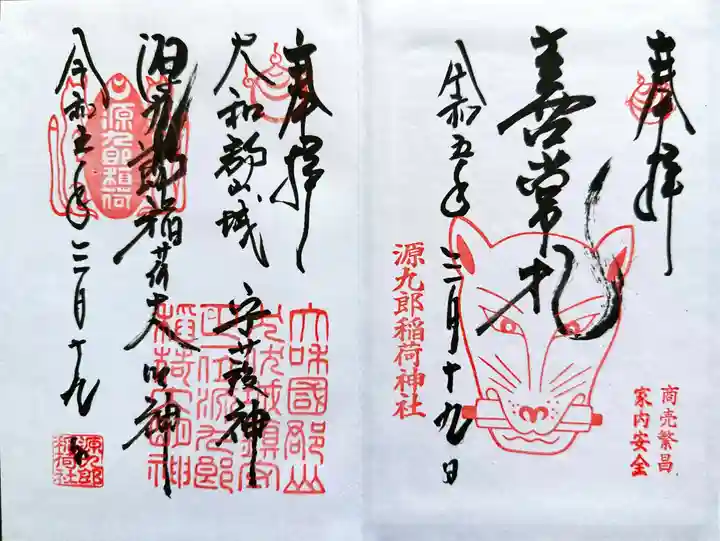 奉拝
善常礼
源九郎稲荷神社
令和五年三月十九日
商売繁昌
家内安全
奉拝
大和郡山城 守護神
源九郎稲荷大明神
令和五年三月十九
源九郎稲荷
大和國郡山
源九郎
稲荷社